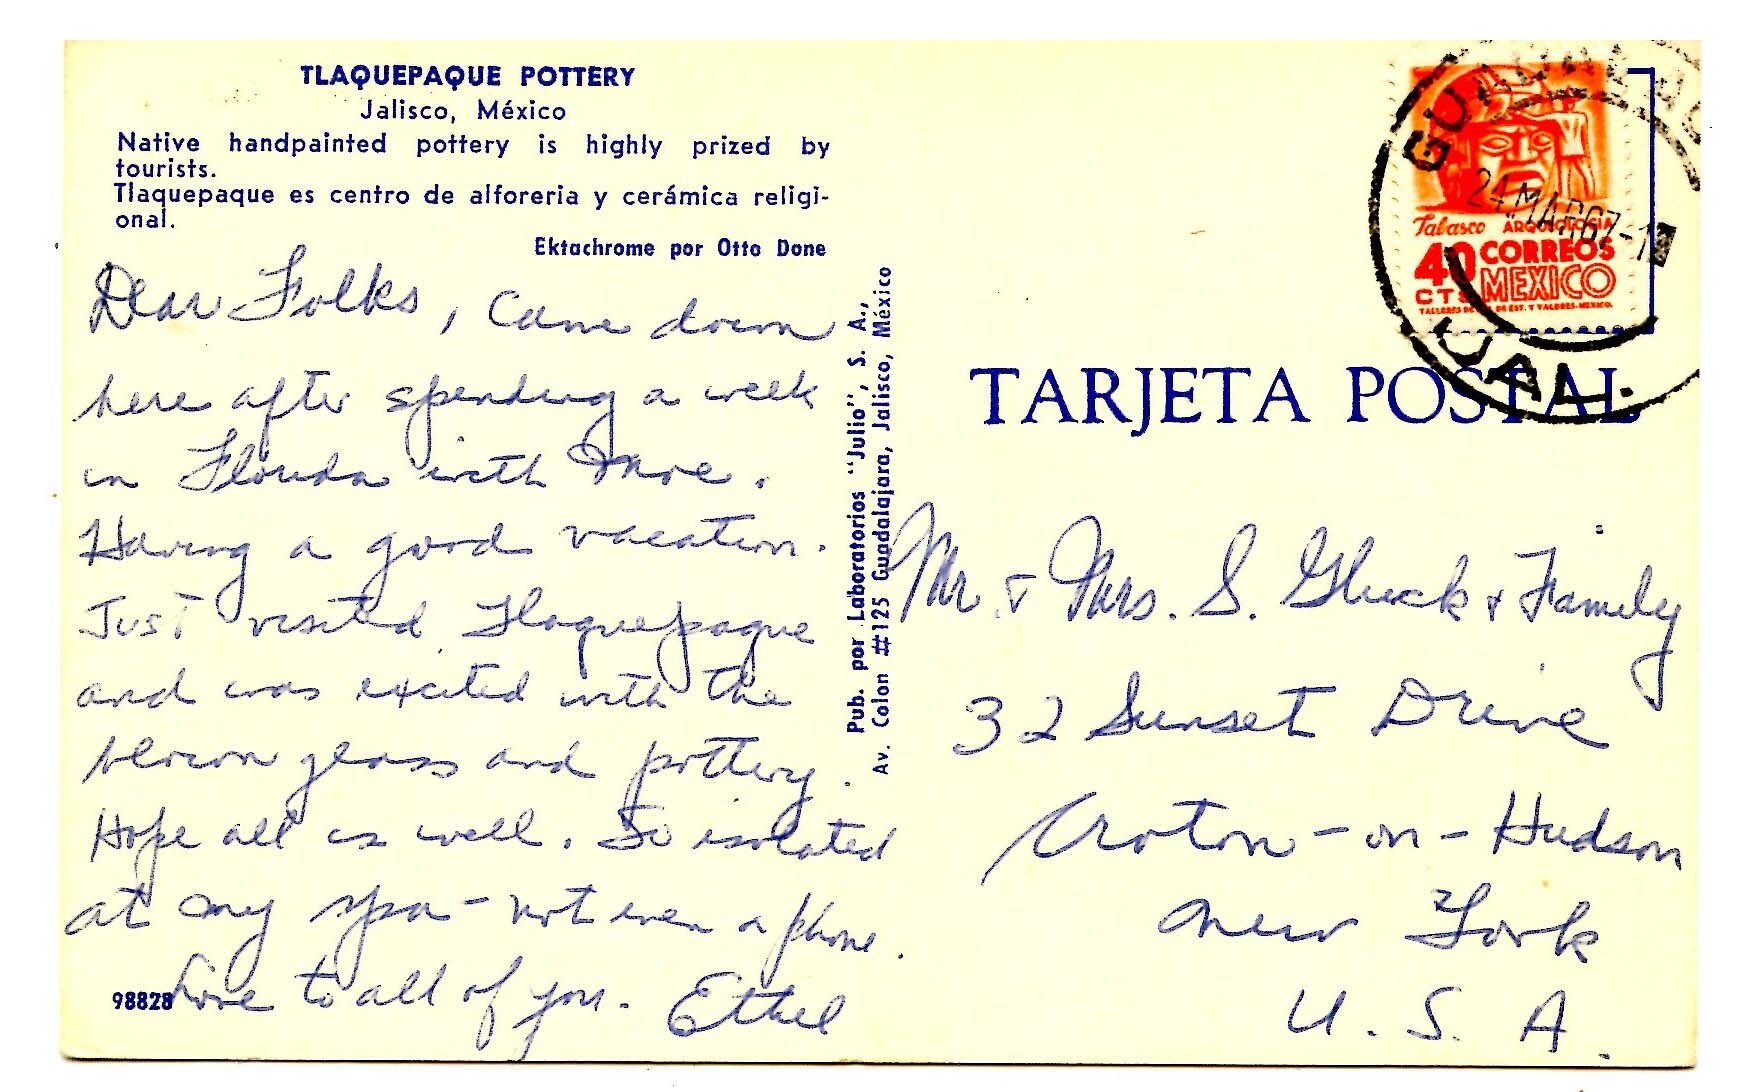 TLAQUEPAQUE POTTERY
Jalisco, México
Native handpainted pottery is highly prized by
tourists.
Tlaquepaque es centro de alforeria y cerámica religi-
onal.
Ektachrome por Otto Done
Dear Folks, Came down
here after spending a week
in Florida with Moe.
Having a good vacation.
Just visited Tlaquepaque
and was excited with the
blown glass and pottery.
Hope all is well. So isolated
at my spa - not even a phone.
Love to all of you. Ethel
98828
Pub. por Laboratorios "Julio", S. A.,
Av. Colon #125 Guadalajara, Jalisco, México
GUADALAJARA
24 MAR 67
JAL.
Tabasco ARQUEOLOGIA
40 CORREOS
CTS MEXICO
TARJETA POSTAL
Mr. & Mrs. S. Gluck & Family
32 Sunset Drive
Croton-on-Hudson
New York
U. S. A.